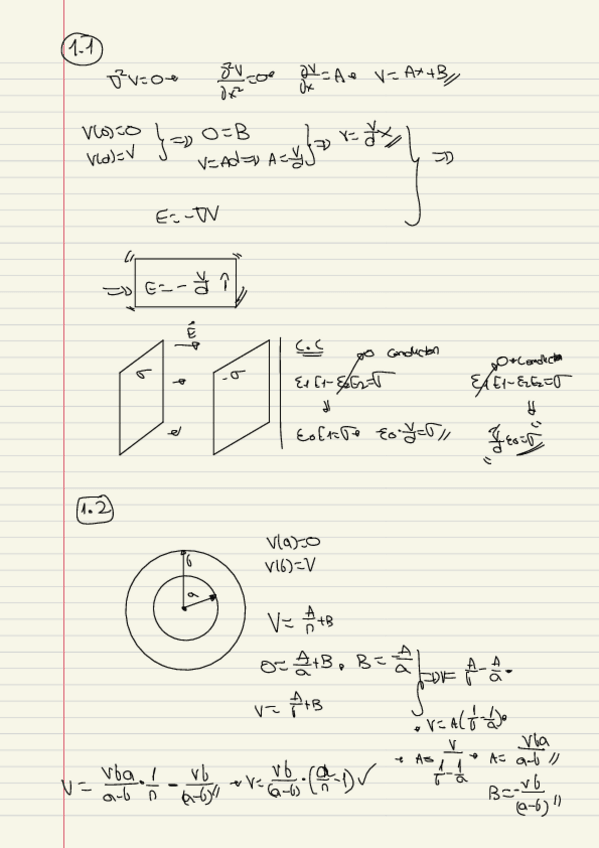 1.1
∇²V=0 → ∂²V/∂x²=0 → ∂V/∂x=A → V=Ax+B //
V(0)=0
V(d)=V } ⇒ 0=B
V=Ad ⇒ A=V/d } ⇒ V=V/d x // } ⇒
E=-∇V
⇒ E=-V/d î
E
σ -σ
C.C
0 conductor
ε1E1-ε2E2=σ
⇓
ε0E1=σ → ε0·V/d=σ //
0 → conductor
ε1E1-ε2E2=σ
⇓
V/d ε0=σ
1.2
b
a
V(a)=0
V(b)=V
V=A/r+B
0=A/a+B, B=-A/a
V=A/b+B } ⇒ V=A/b-A/a →
→ V=A(1/b-1/a) →
→ A=V/(1/b-1/a) → A=Vba/(a-b) //
B=-Vb/(a-b) //
V=Vba/(a-b)·1/r-Vb/(a-b) // → V=Vb/(a-b)·(a/r-1) ✓